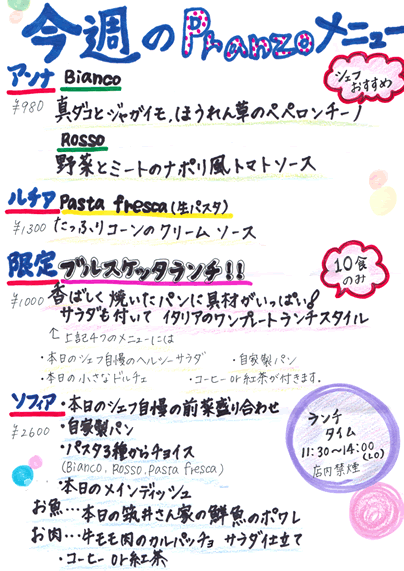 今週のPranzoメニュー
シェフ
おすすめ
アンナ Bianco
¥980
真ダコとジャガイモ、ほうれん草のペペロンチーノ
Rosso
野菜とミートのナポリ風トマトソース
ルチア Pasta fresca(生パスタ)
¥1300 たっぷりコーンのクリームソース
限定 ブルスケッタランチ!!
10食
のみ
¥1000 香ばしく焼いたパンに具材がいっぱい♪
サラダも付いて イタリアのワンプレートランチスタイル
↑上記4つのメニューには
・本日のシェフ自慢のヘルシーサラダ ・自家製パン
・本日の小さなドルチェ ・コーヒーor紅茶が付きます.
ソフィア ・本日のシェフ自慢の前菜盛り合わせ
¥2600 ・自家製パン
・パスタ3種からチョイス
(Bianco. Rosso. Pasta fresca)
・本日のメインディッシュ
お魚…本日の筑井さん家の鮮魚のポワレ
お肉…牛モモ肉のカルパッチョ サラダ仕立て
・コーヒーor紅茶
ランチ
タイム
11:30~14:00
(LO)
店内禁煙